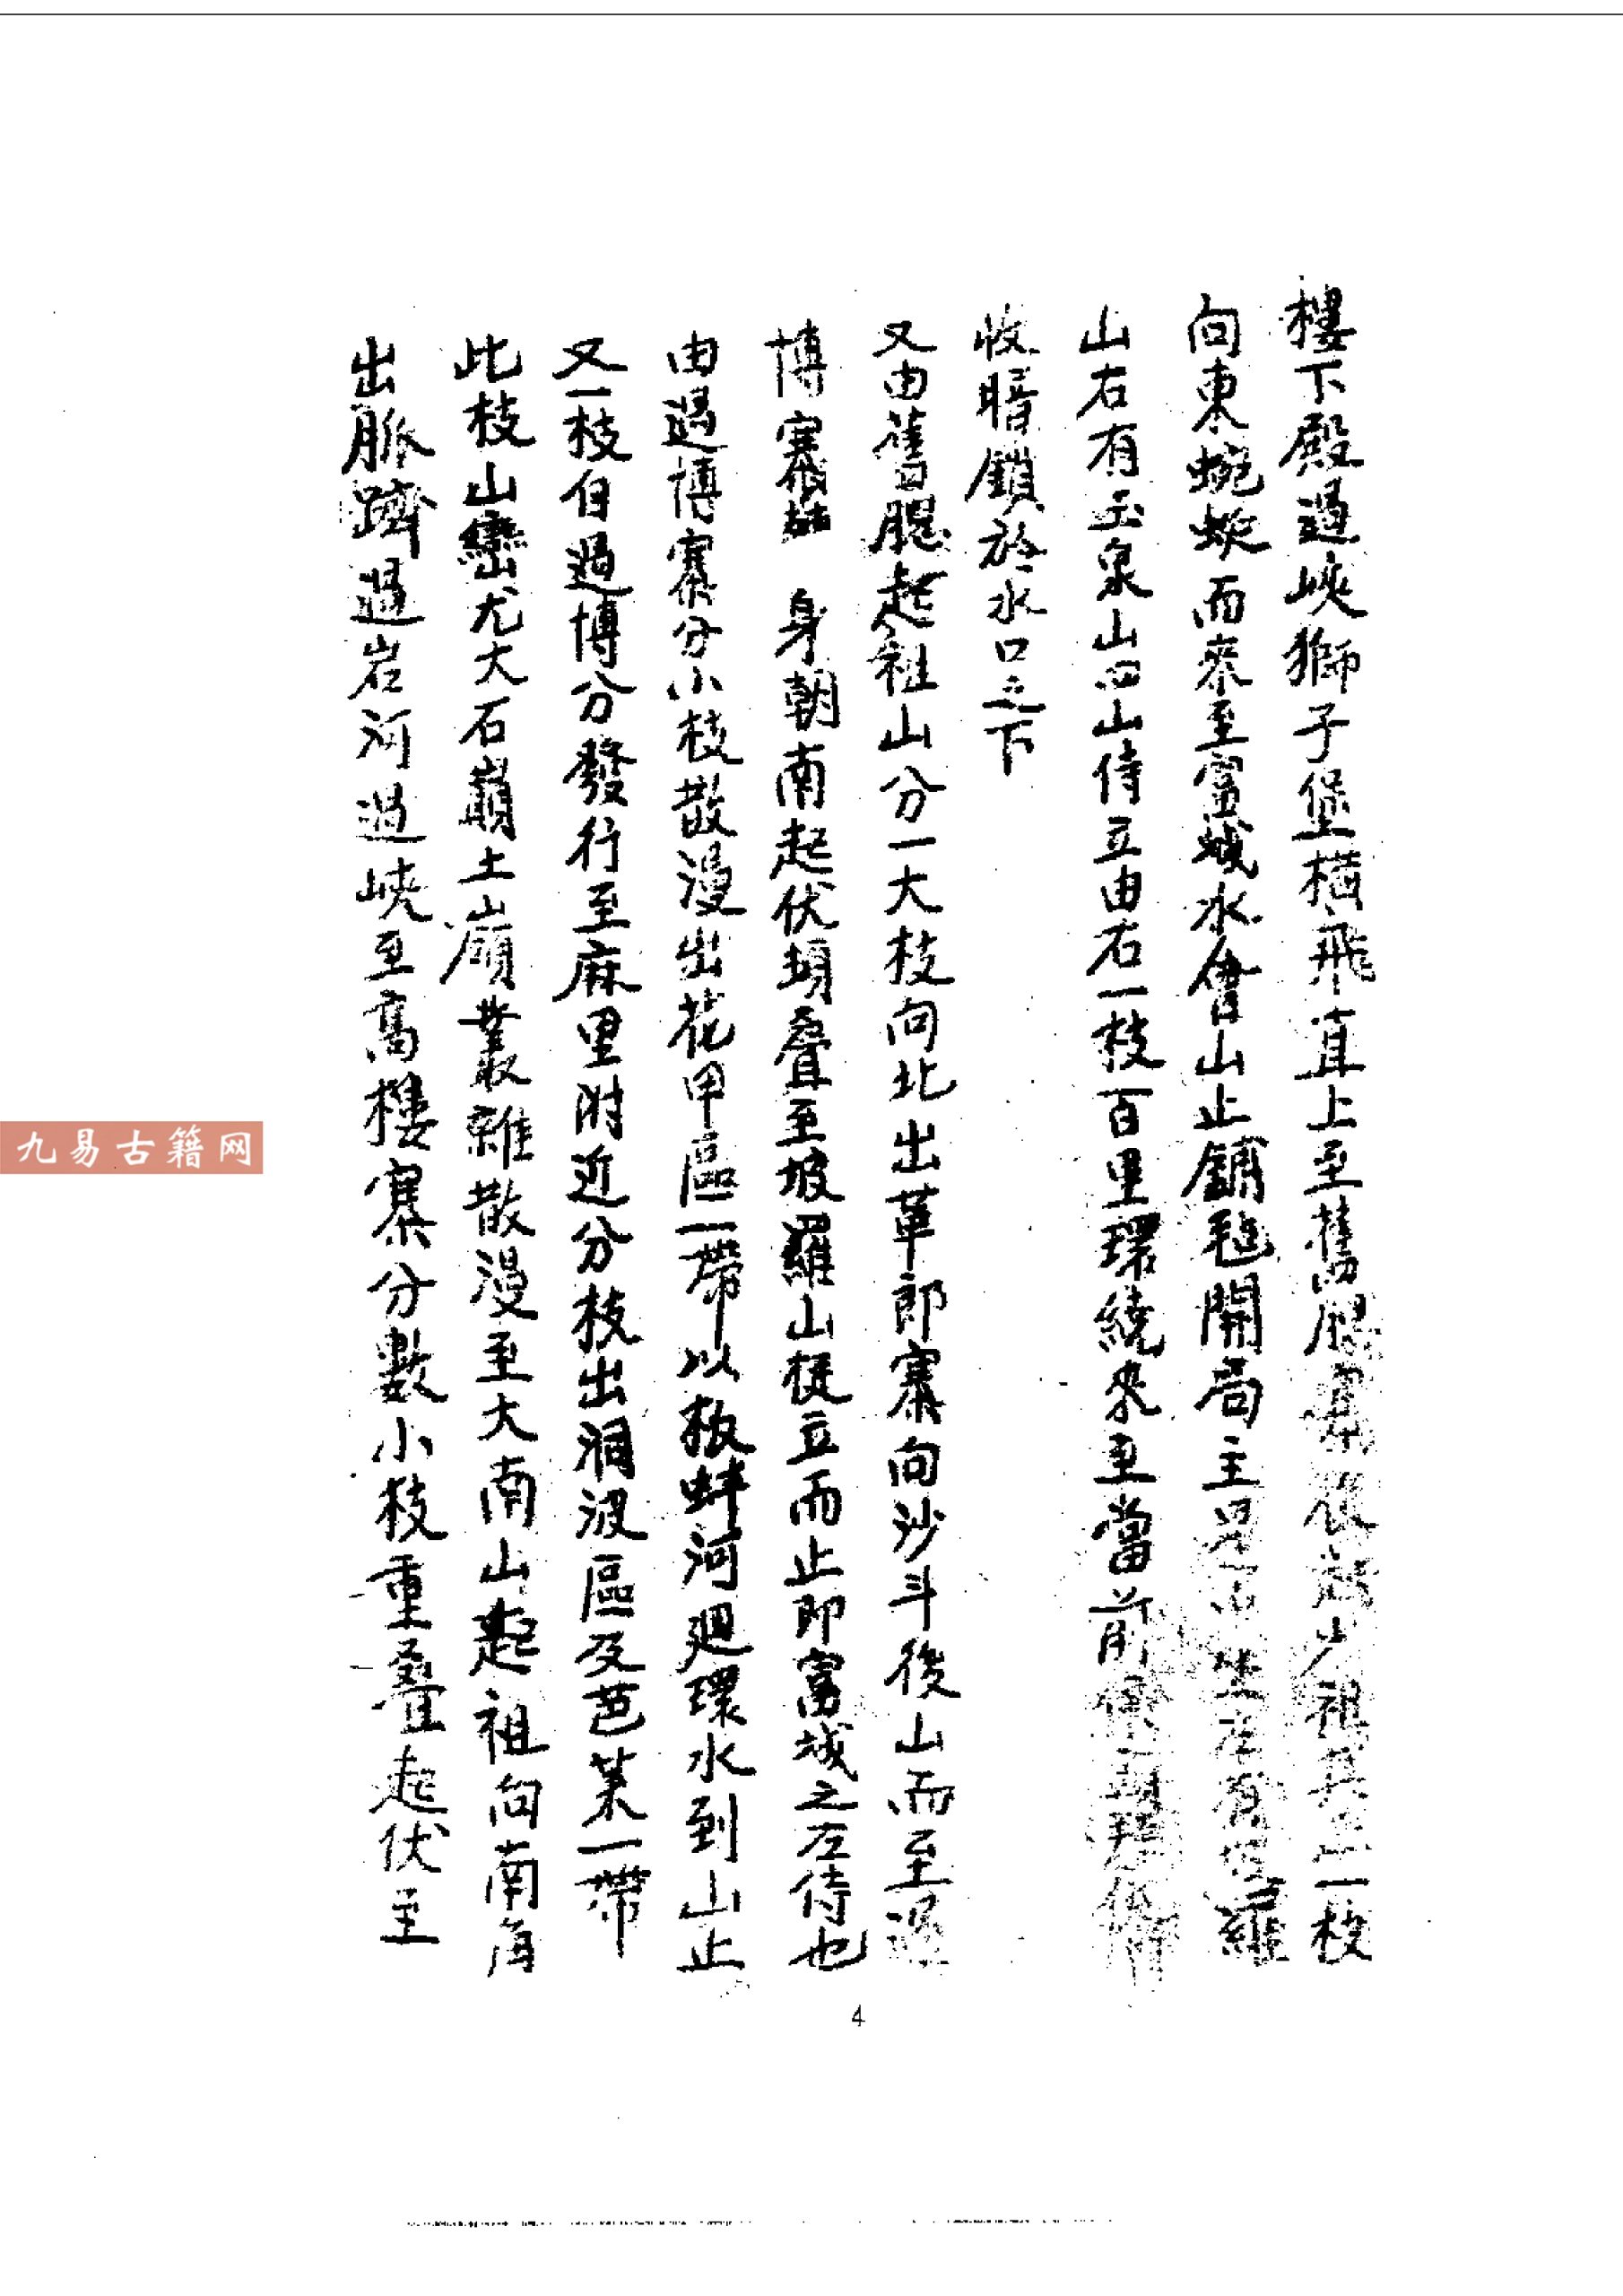 樓下殿過峽獅子堡橫飛直上至舊腮寨後起少祖其一枝
向東蜿蜒而來至富城水會山止鋪毡開局主星左有羅
山右有玉泉山四山侍立由右一枝百里環繞來至當前
收暗鎖於水口之下
又由舊腮起祖山分一大枝向北出革郎寨向沙斗後山而至過
博寨 身朝南起伏頓疊至坡羅山挺立而止即富城之左侍也
由過博寨分小枝散漫出花甲區一帶以板蚌河迴環水到山止
又一枝自過博分發行至麻里附近分枝出洞波區及芭萊一帶
此枝山巒尤大石崩土崩叢雜散漫至大南山起祖向南角
出脈躋過岩河過峽至高樓寨分數小枝重疊起伏主
4
九易古籍网